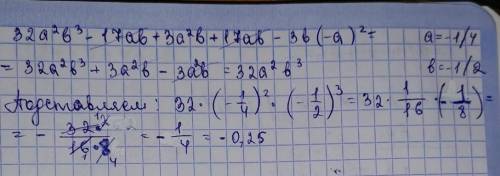 32a²b³ - 17ab + 3a²b + 17ab - 3b(-a)² = a = -1/4
= 32a²b³ + 3a²b - 3a²b = 32a²b³ b = -1/2
Подставляем: 32 · (-1/4)² · (-1/2)³ = 32 · 1/16 · (-1/8) =
= - 32/(16·8) = - 1/4 = -0,25